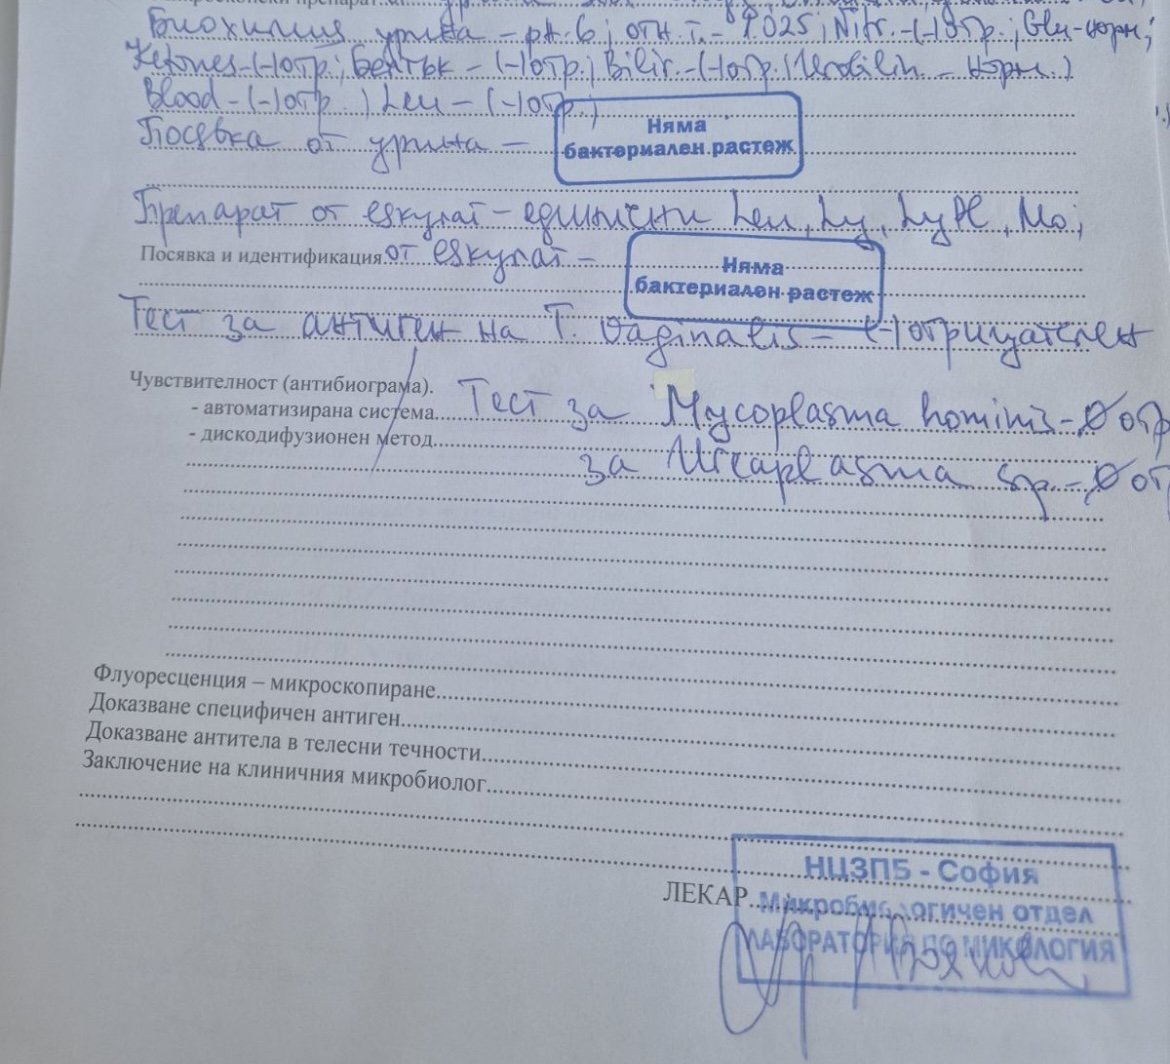 Биохимия урина - pH. 6; отн. т. - 1.025; Nitr. - (-) отр.; Glu - норм;
Ketones - (-) отр.; Белтък - (-) отр.; Bilir. - (-) отр.; Urobilin - норм.;
Blood - (-) отр.; Leu - (-) отр.;
Посявка от урина - Няма
бактериален растеж
Препарат от еякулат - единични Leu, Ly,
Посявка и идентификация от еякулат - Няма
бактериален растеж
Тест за антиген на T. vaginalis - (-) отрицателен
Чувствителност (антибиограма).
- автоматизирана система Тест за Mycoplasma hominis - отр
- дискодифузионен метод
за Ureaplasma sp. - от
Флуоресценция – микроскопиране
Доказване специфичен антиген
Доказване антитела в телесни течности
Заключение на клиничния микробиолог
НЦЗПБ - София
ЛЕКАР Микробиологичен отдел
ЛАБОРАТОРИЯ ПО МИКОЛОГИЯ